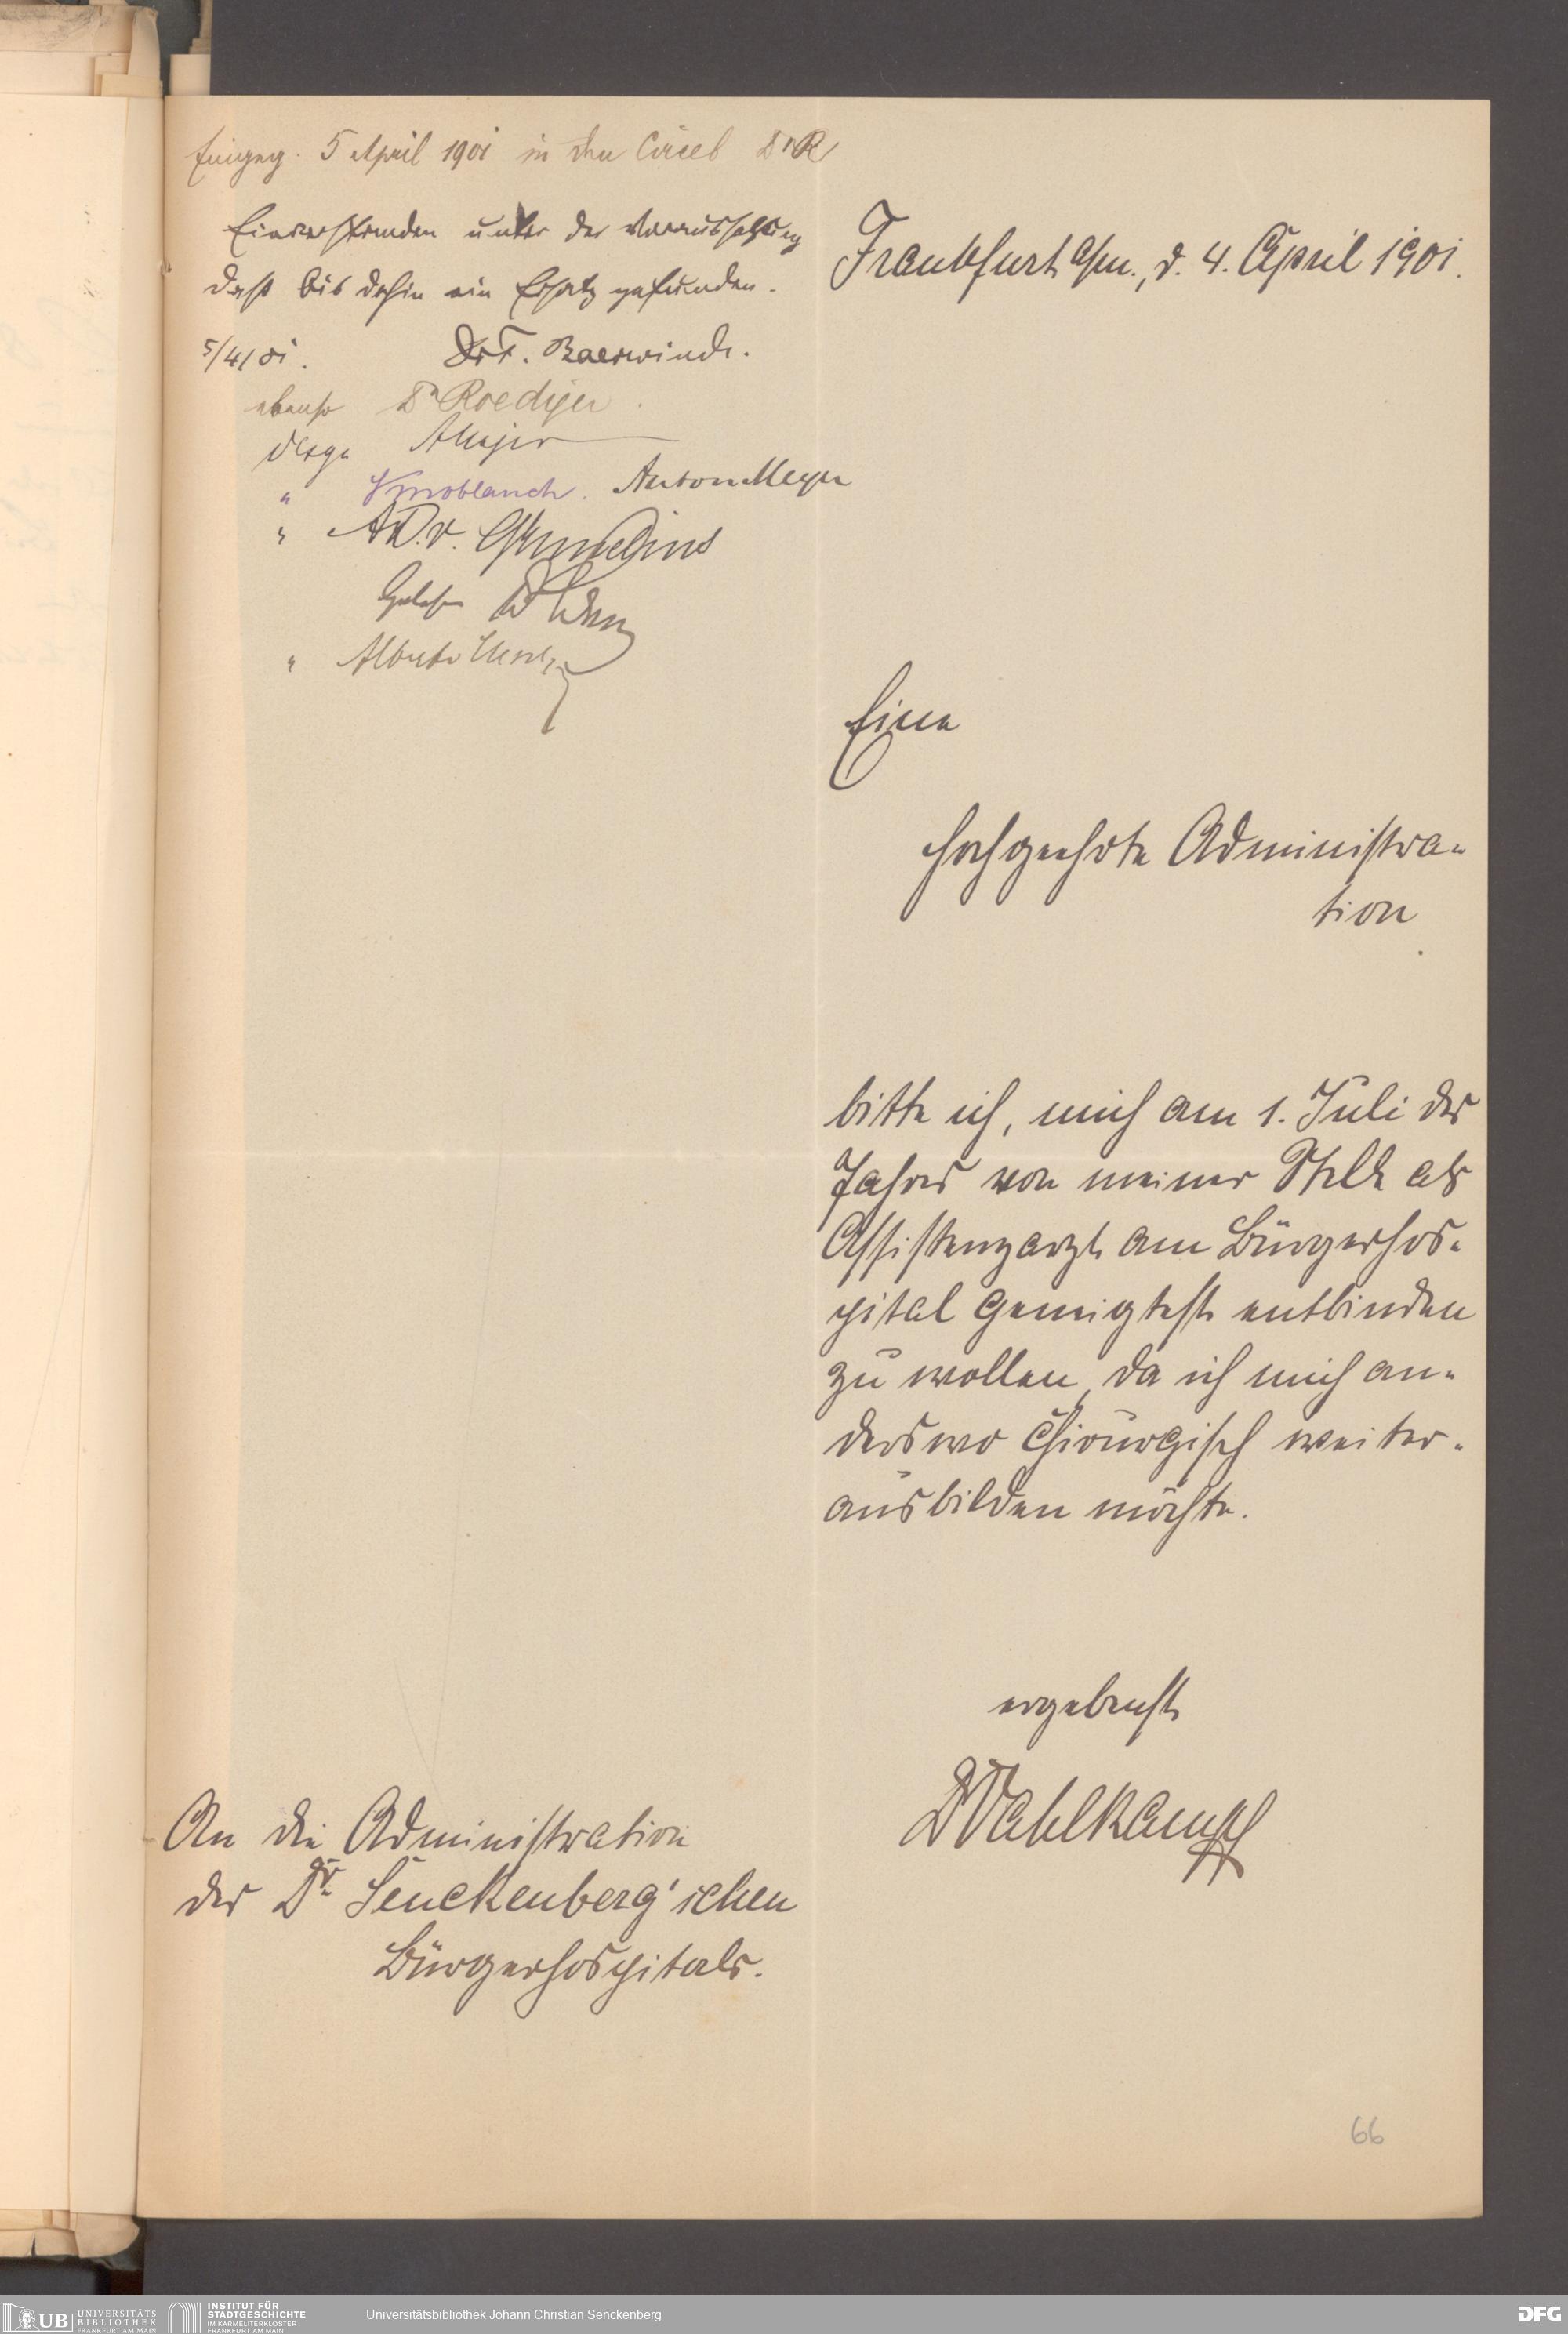 Eingeg. 5 April 1901 in den Circel Dr R
Einverstanden unter der Voraussetzung
daß bis dahin ein Ersatz gefunden.
5/4/01. Dr F. Baerwindt.
ebenso Dr Roediger.
desgl AMajer
" Knoblauch. Anton Meyer
" AD.v. Gwinner
Gelesen
" Alberto
Frankfurt a/m., d. 4. April 1901.
Eine
hochgeehrte Administra-
tion
bitte ich, mich am 1. Juli des
Jahres von meiner Stelle als
Assistenzarzt am Bürgerhos-
pital geneigtest entbinden
zu wollen, da ich mich an-
derswo chirurgisch weiter-
ausbilden möchte.
ergebenst
DWahlkampf
An die Administration
des Dr. Senckenberg'schen
Bürgerhospitals.
66
UB UNIVERSITÄTS
BIBLIOTHEK
FRANKFURT AM MAIN
INSTITUT FÜR
STADTGESCHICHTE
IM KARMELITERKLOSTER
FRANKFURT AM MAIN
Universitätsbibliothek Johann Christian Senckenberg
DFG